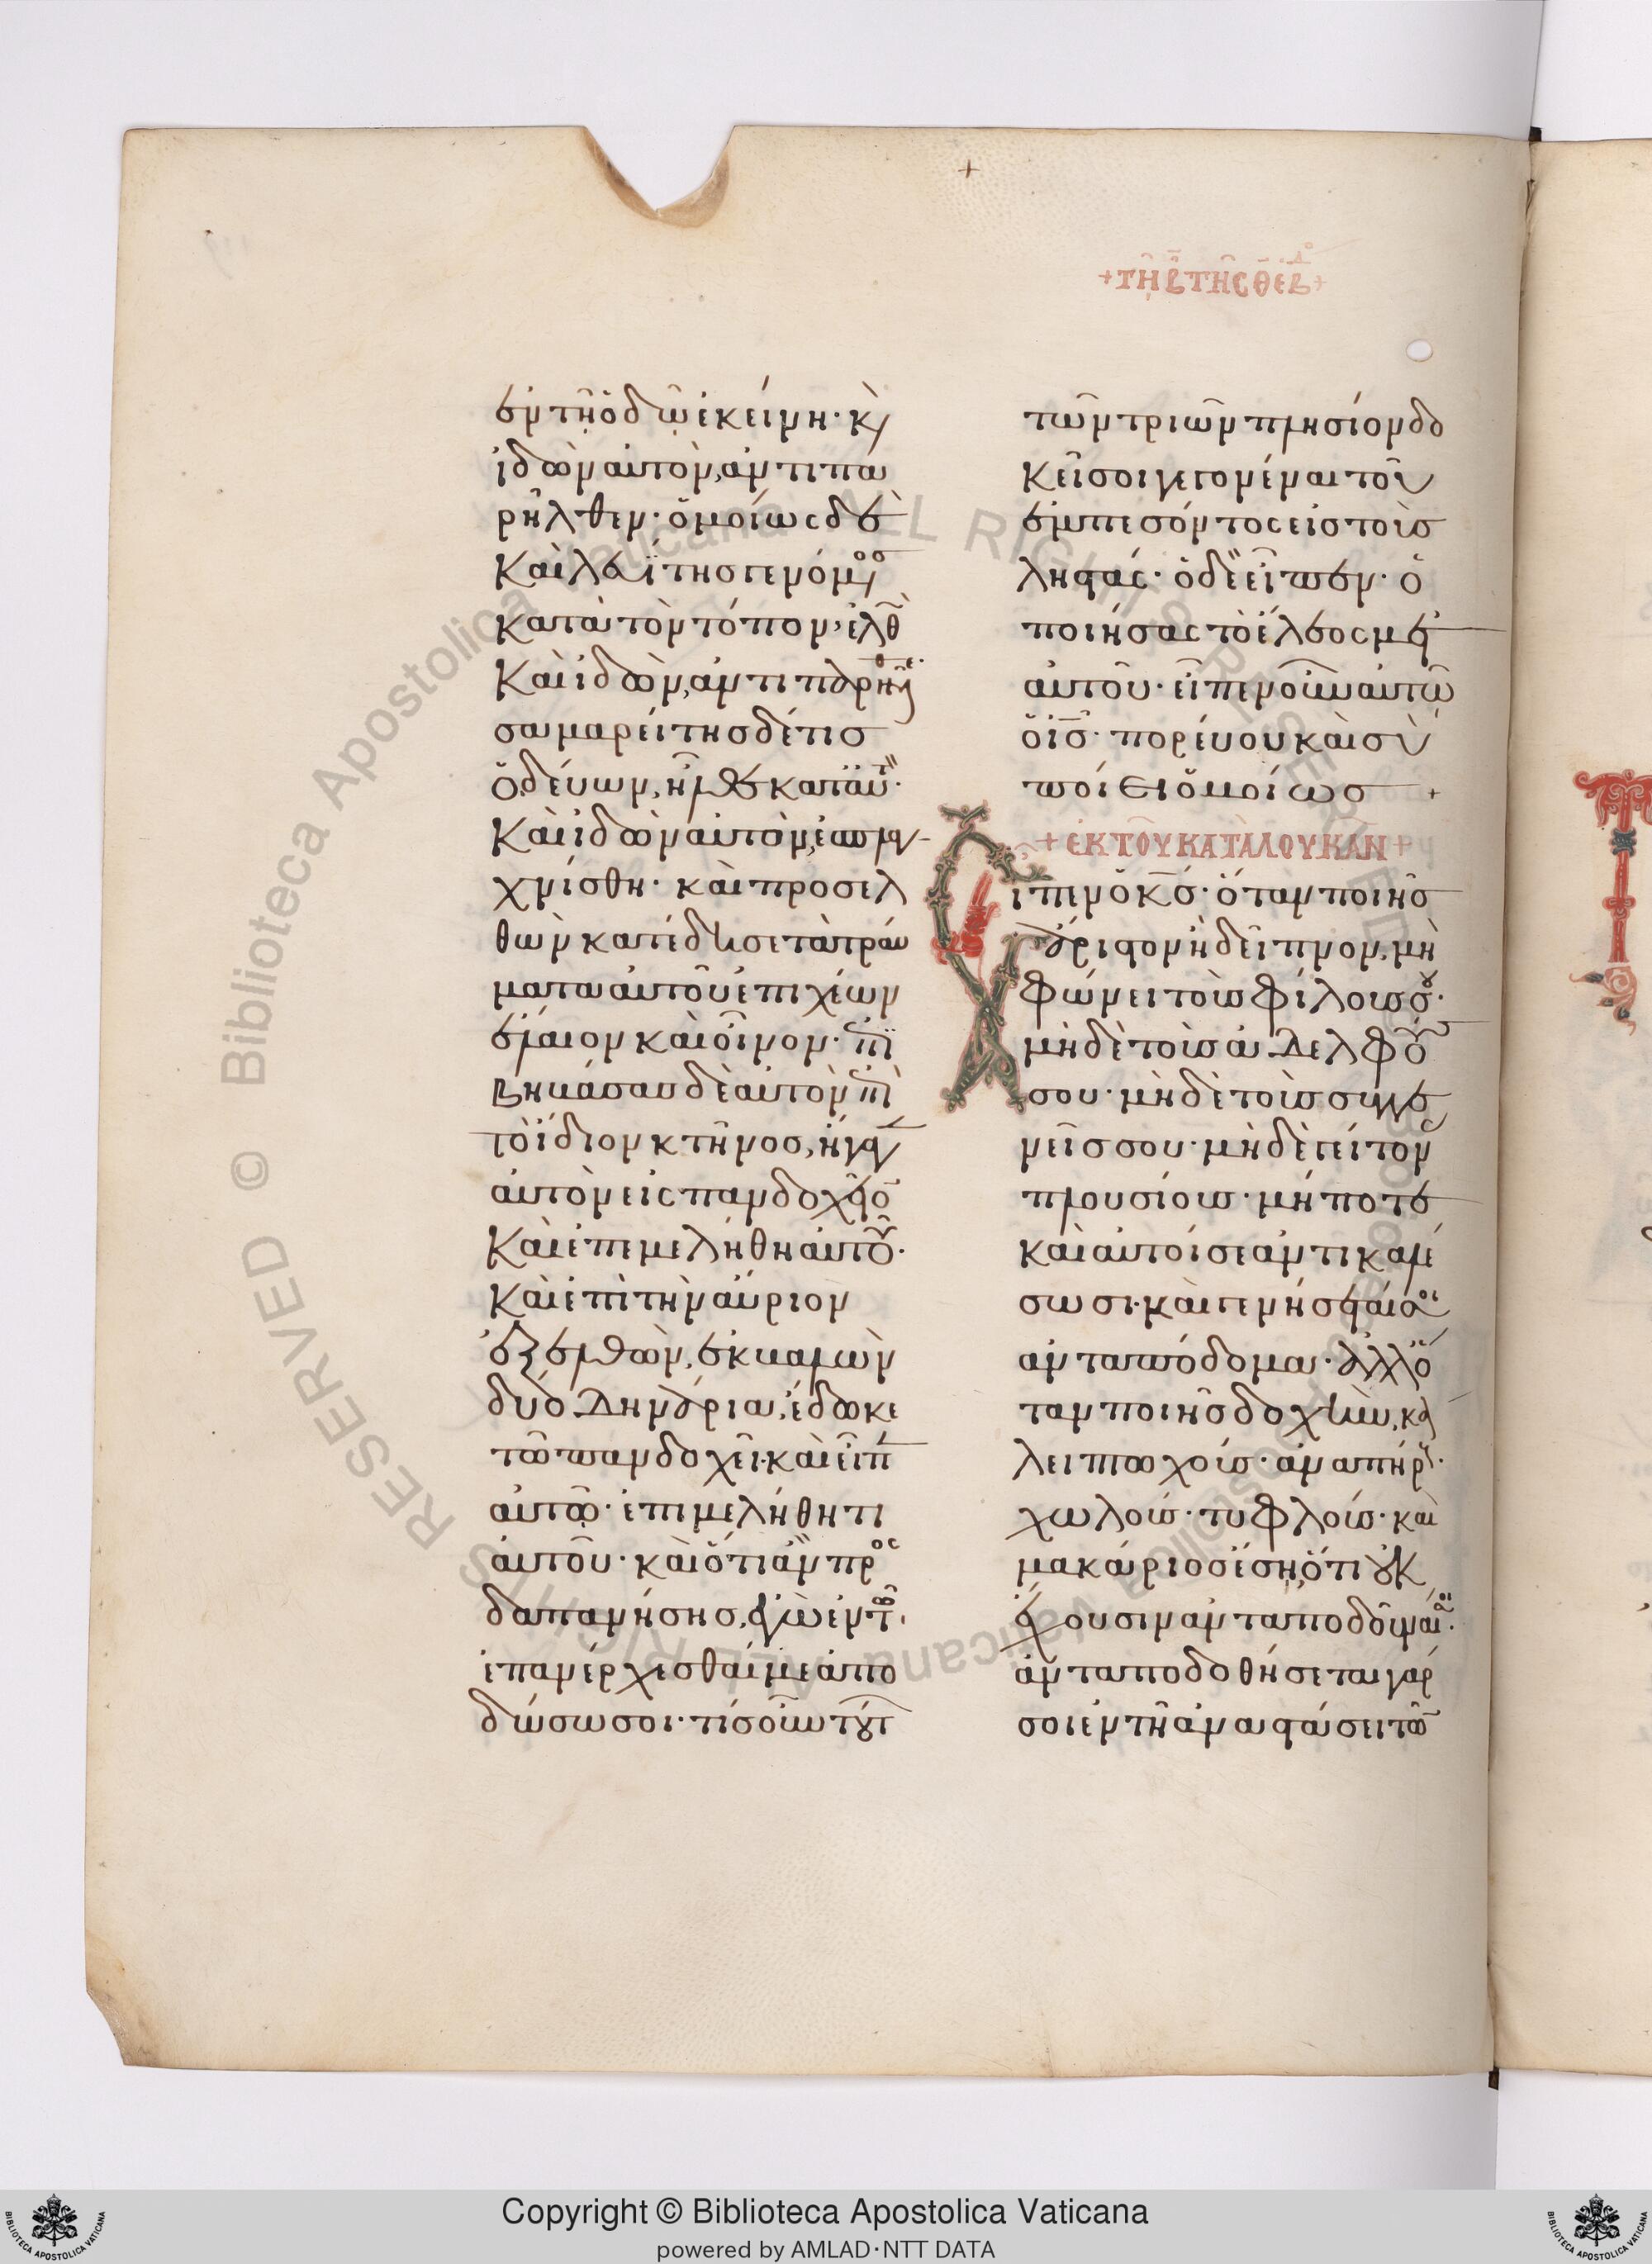 + τῆ β τῆς θ ἑβδ +
ἐν τῆ ὁδῶ ἐκείνη· κ(αὶ)
ἰδὼν αὐτὸν, ἀντιπα
ρῆλθεν· ὁμοίως δὲ
καὶ λευΐτης γενόμ(εν)ος
κατὰ τὸν τόπον, ἐλθὼ(ν)
καὶ ἰδὼν, ἀντιπαρῆλθε·
σαμαρείτης δέ τις
ὁδεύων, ἦλθε κατ' αὐτ(όν)·
καὶ ἰδὼν αὐτὸν, ἐσπλα
χνίσθη· καὶ προσελ
θὼν κατέδησε τὰ τραύ
ματα αὐτοῦ ἐπιχέων
ἔλαιον καὶ οἶνον· ἐπι
βηβάσας δὲ αὐτὸν ἐπὶ
τὸ ἴδιον κτῆνος, ἤγαγ(εν)
αὐτὸν εἰς πανδοχεῖο(ν)
καὶ ἐπεμελήθη αὐτοῦ·
καὶ ἐπὶ τὴν αὔριον
ἐξελθὼν, ἐκβαλὼν
δύο δηνάρια, ἔδωκε
τῶ πανδοχεῖ· καὶ εἶπ(εν)
αὐτῶ· ἐπιμελήθητι
αὐτοῦ· καὶ ὅτι ἂν προσ
δαπανήσης, ἐγὼ ἐν τῶ
ἐπανέρχεσθαί με ἀπο
δώσω σοι· τίς οὖν τούτ(ων)
τῶν τριῶν πλησίον δο
κεῖ σοι γεγονέναι τοῦ
ἐμπεσόντος εἰς τοὺς
ληστάς· ὁ δὲ εἶπεν· ὁ
ποιήσας τὸ ἔλεος μετ'
αὐτοῦ· εἶπεν οὖν αὐτῶ
ὁ ι(ησοῦ)ς· πορεύου καὶ σὺ
ποίει ὁμοίως +
+ ἐκ τοῦ κατὰ λουκᾶν +
Εἶπεν ὁ κ(ύριο)ς· ὅταν ποιῆς
ἄριστον ἢ δεῖπνον, μὴ
φώνει τοὺς φίλους σου·
μὴ δὲ τοὺς ἀδελφούς
σου· μὴ δὲ τοὺς συγγε
νεῖς σου· μὴ δὲ γείτον(ας)
πλουσίους· μή ποτε
καὶ αὐτοί σε ἀντικαλέ
σωσι· καὶ γενήσεταί σοι
ἀνταπόδομα· ἀλλ' ὅ
ταν ποιῆς δοχὴν, κά
λει πτωχούς· ἀναπήρους·
χωλούς· τυφλούς· καὶ
μακάριος ἔση, ὅτι οὐκ
ἔχουσιν ἀνταποδοῦναί σοι·
ἀνταποδοθήσεται γάρ
σοι ἐν τῆ ἀναστάσει τῶ(ν)
Copyright © Biblioteca Apostolica Vaticana
powered by AMLAD·NTT DATA